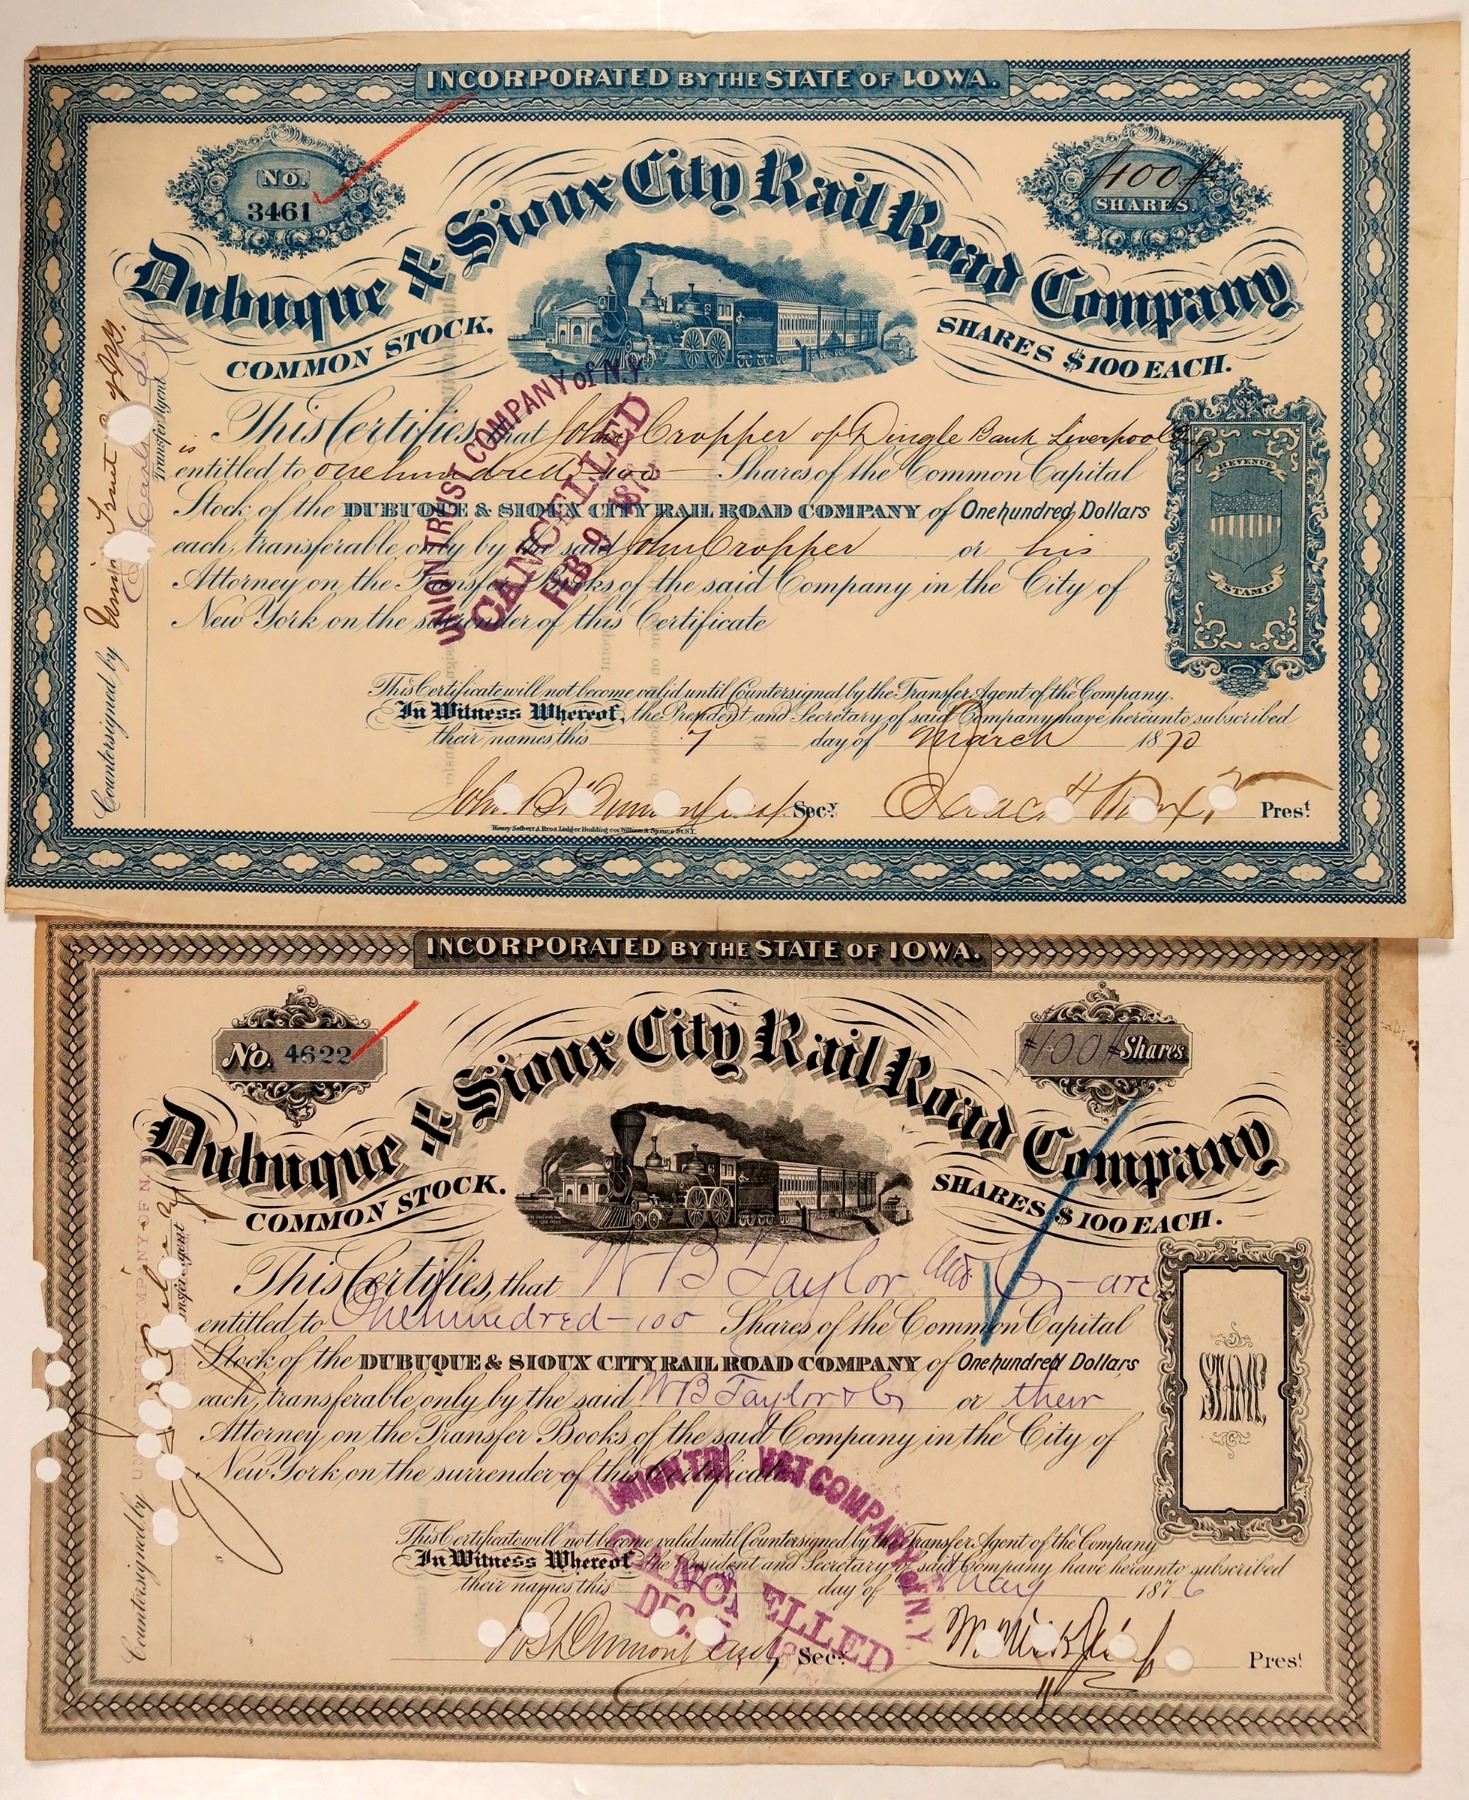 INCORPORATED BY THE STATE OF IOWA.
No. 3461
100 SHARES.
Dubuque & Sioux City Rail Road Company
COMMON STOCK. SHARES $100 EACH.
This Certifies that John Cropper of Dingle Bank Liverpool Eng is
entitled to one hundred 100 Shares of the Common Capital
Stock of the DUBUQUE & SIOUX CITY RAIL ROAD COMPANY of One hundred Dollars
each, transferable only by the said John Cropper or his
Attorney on the Transfer Books of the said Company in the City of
New York on the surrender of this Certificate
REVENUE
STAMP
UNION TRUST COMPANY of N.Y.
CANCELLED
FEB 9 1873
Countersigned by Union Trust Co of N.Y.
Transfer Agent
This Certificate will not become valid until Countersigned by the Transfer Agent of the Company.
In Witness Whereof, the President and Secretary of said Company have hereunto subscribed
their names this 7 day of March 1870
Secy. Prest.
Henry Seibert & Bros Ledger Building cor William & Spruce St N.Y.
INCORPORATED BY THE STATE OF IOWA.
No. 4622
100 Shares
Dubuque & Sioux City Rail Road Company
COMMON STOCK. SHARES $100 EACH.
This Certifies, that W B Taylor and Co are
entitled to One hundred - 100 Shares of the Common Capital
Stock of the DUBUQUE & SIOUX CITY RAIL ROAD COMPANY of One hundred Dollars
each, transferable only by the said W B Taylor & Co or their
Attorney, on the Transfer Books of the said Company in the City of
New York, on the surrender of this Certificate
STAMP
UNION TRUST COMPANY of N.Y.
CANCELLED
DEC.
Countersigned by
Transfer Agent
This Certificate will not become valid until Countersigned by the Transfer Agent of the Company
In Witness Whereof the President and Secretary of said Company have hereunto subscribed
their names this day of May 1876
Secy. Prest.